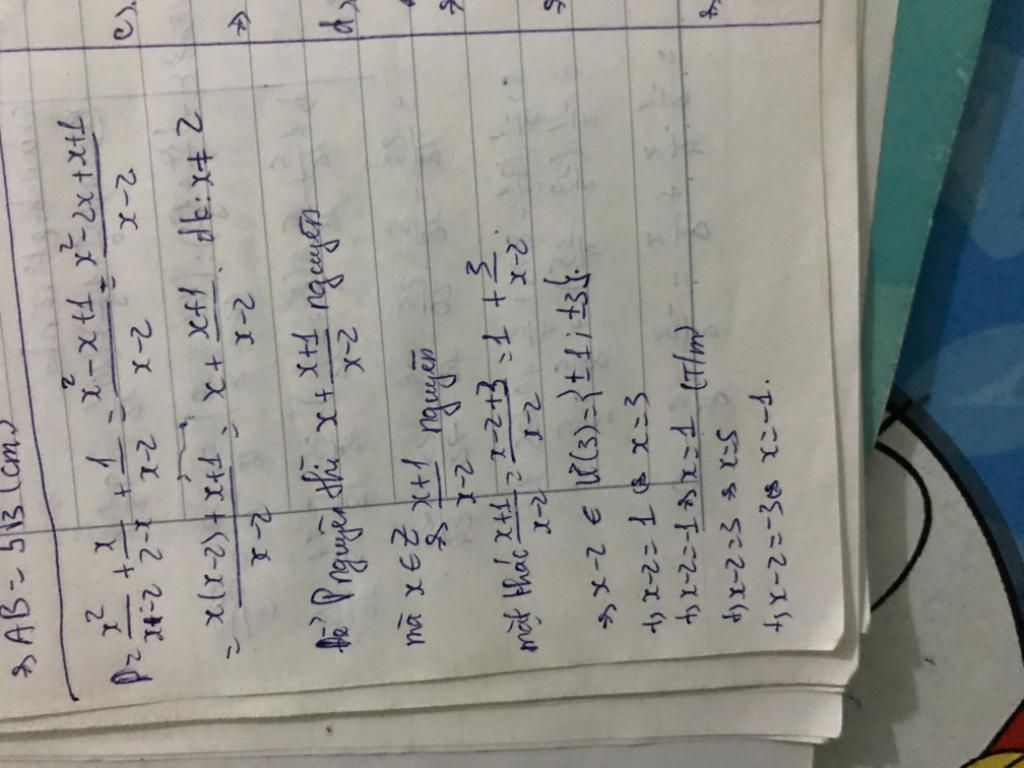 => AB = 5√3 (cm)
P = x²/(x-2) + x/(2-x) + 1/(x-2) = (x²-x+1)/(x-2) = (x²-2x+x+1)/(x-2)
= (x(x-2)+x+1)/(x-2) = x + (x+1)/(x-2). đk: x ≠ 2
Để P nguyên thì x + (x+1)/(x-2) nguyên
mà x ∈ Z
=> (x+1)/(x-2) nguyên
mặt khác (x+1)/(x-2) = (x-2+3)/(x-2) = 1 + 3/(x-2).
=> x-2 ∈ Ư(3) = {±1; ±3}.
+, x-2=1 <=> x=3
+, x-2=-1 => x=1 (T/m)
+, x-2=3 => x=5
+, x-2=-3 <=> x=-1.
c),
=>
d),